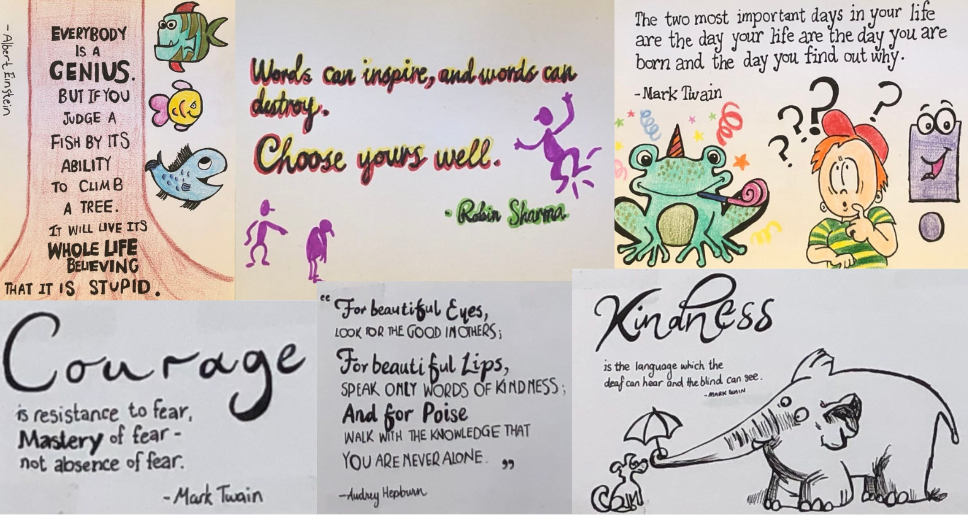 EVERYBODY
IS A
GENIUS.
BUT IF YOU
JUDGE A
FISH BY ITS
ABILITY
TO CLIMB
A TREE.
IT WILL LIVE ITS
WHOLE LIFE
BELIEVING
THAT IT IS STUPID.
- Albert Einstein
Words can inspire, and words can
destroy.
Choose yours well.
- Robin Sharma
The two most important days in your life
are the day your life are the day you are
born and the day you find out why.
- Mark Twain
? ? ? ?
Courage
is resistance to fear,
Mastery of fear -
not absence of fear.
- Mark Twain
"For beautiful Eyes,
LOOK FOR THE GOOD IN OTHERS;
For beautiful Lips,
SPEAK ONLY WORDS OF KINDNESS;
And for Poise
WALK WITH THE KNOWLEDGE THAT
YOU ARE NEVER ALONE. "
- Audrey Hepburn
Kindness
is the language which the
deaf can hear and the blind can see.
- MARK TWAIN